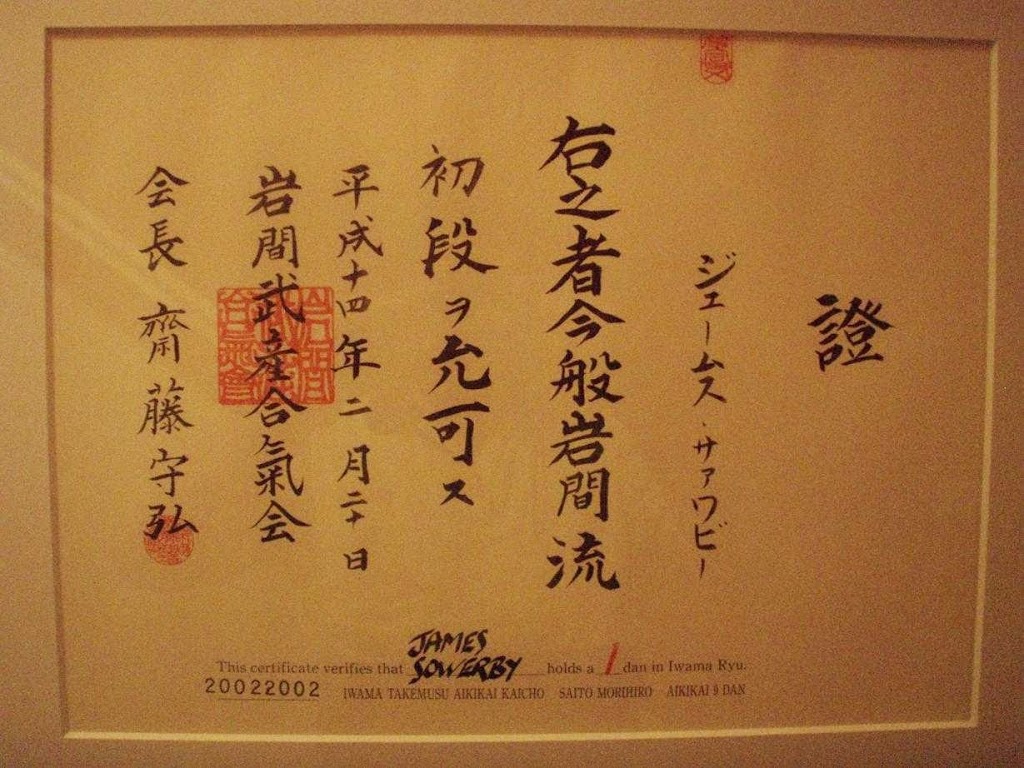 證
ジェームス・サァワビー
右之者今般岩間流
初段ヲ允可ス
平成十四年二月二十日
岩間武産合氣会
会長 齋藤守弘
This certificate verifies that JAMES SOWERBY holds a 1 dan in Iwama Ryu.
20022002 IWAMA TAKEMUSU AIKIKAI KAICHO SAITO MORIHIRO AIKIKAI 9 DAN